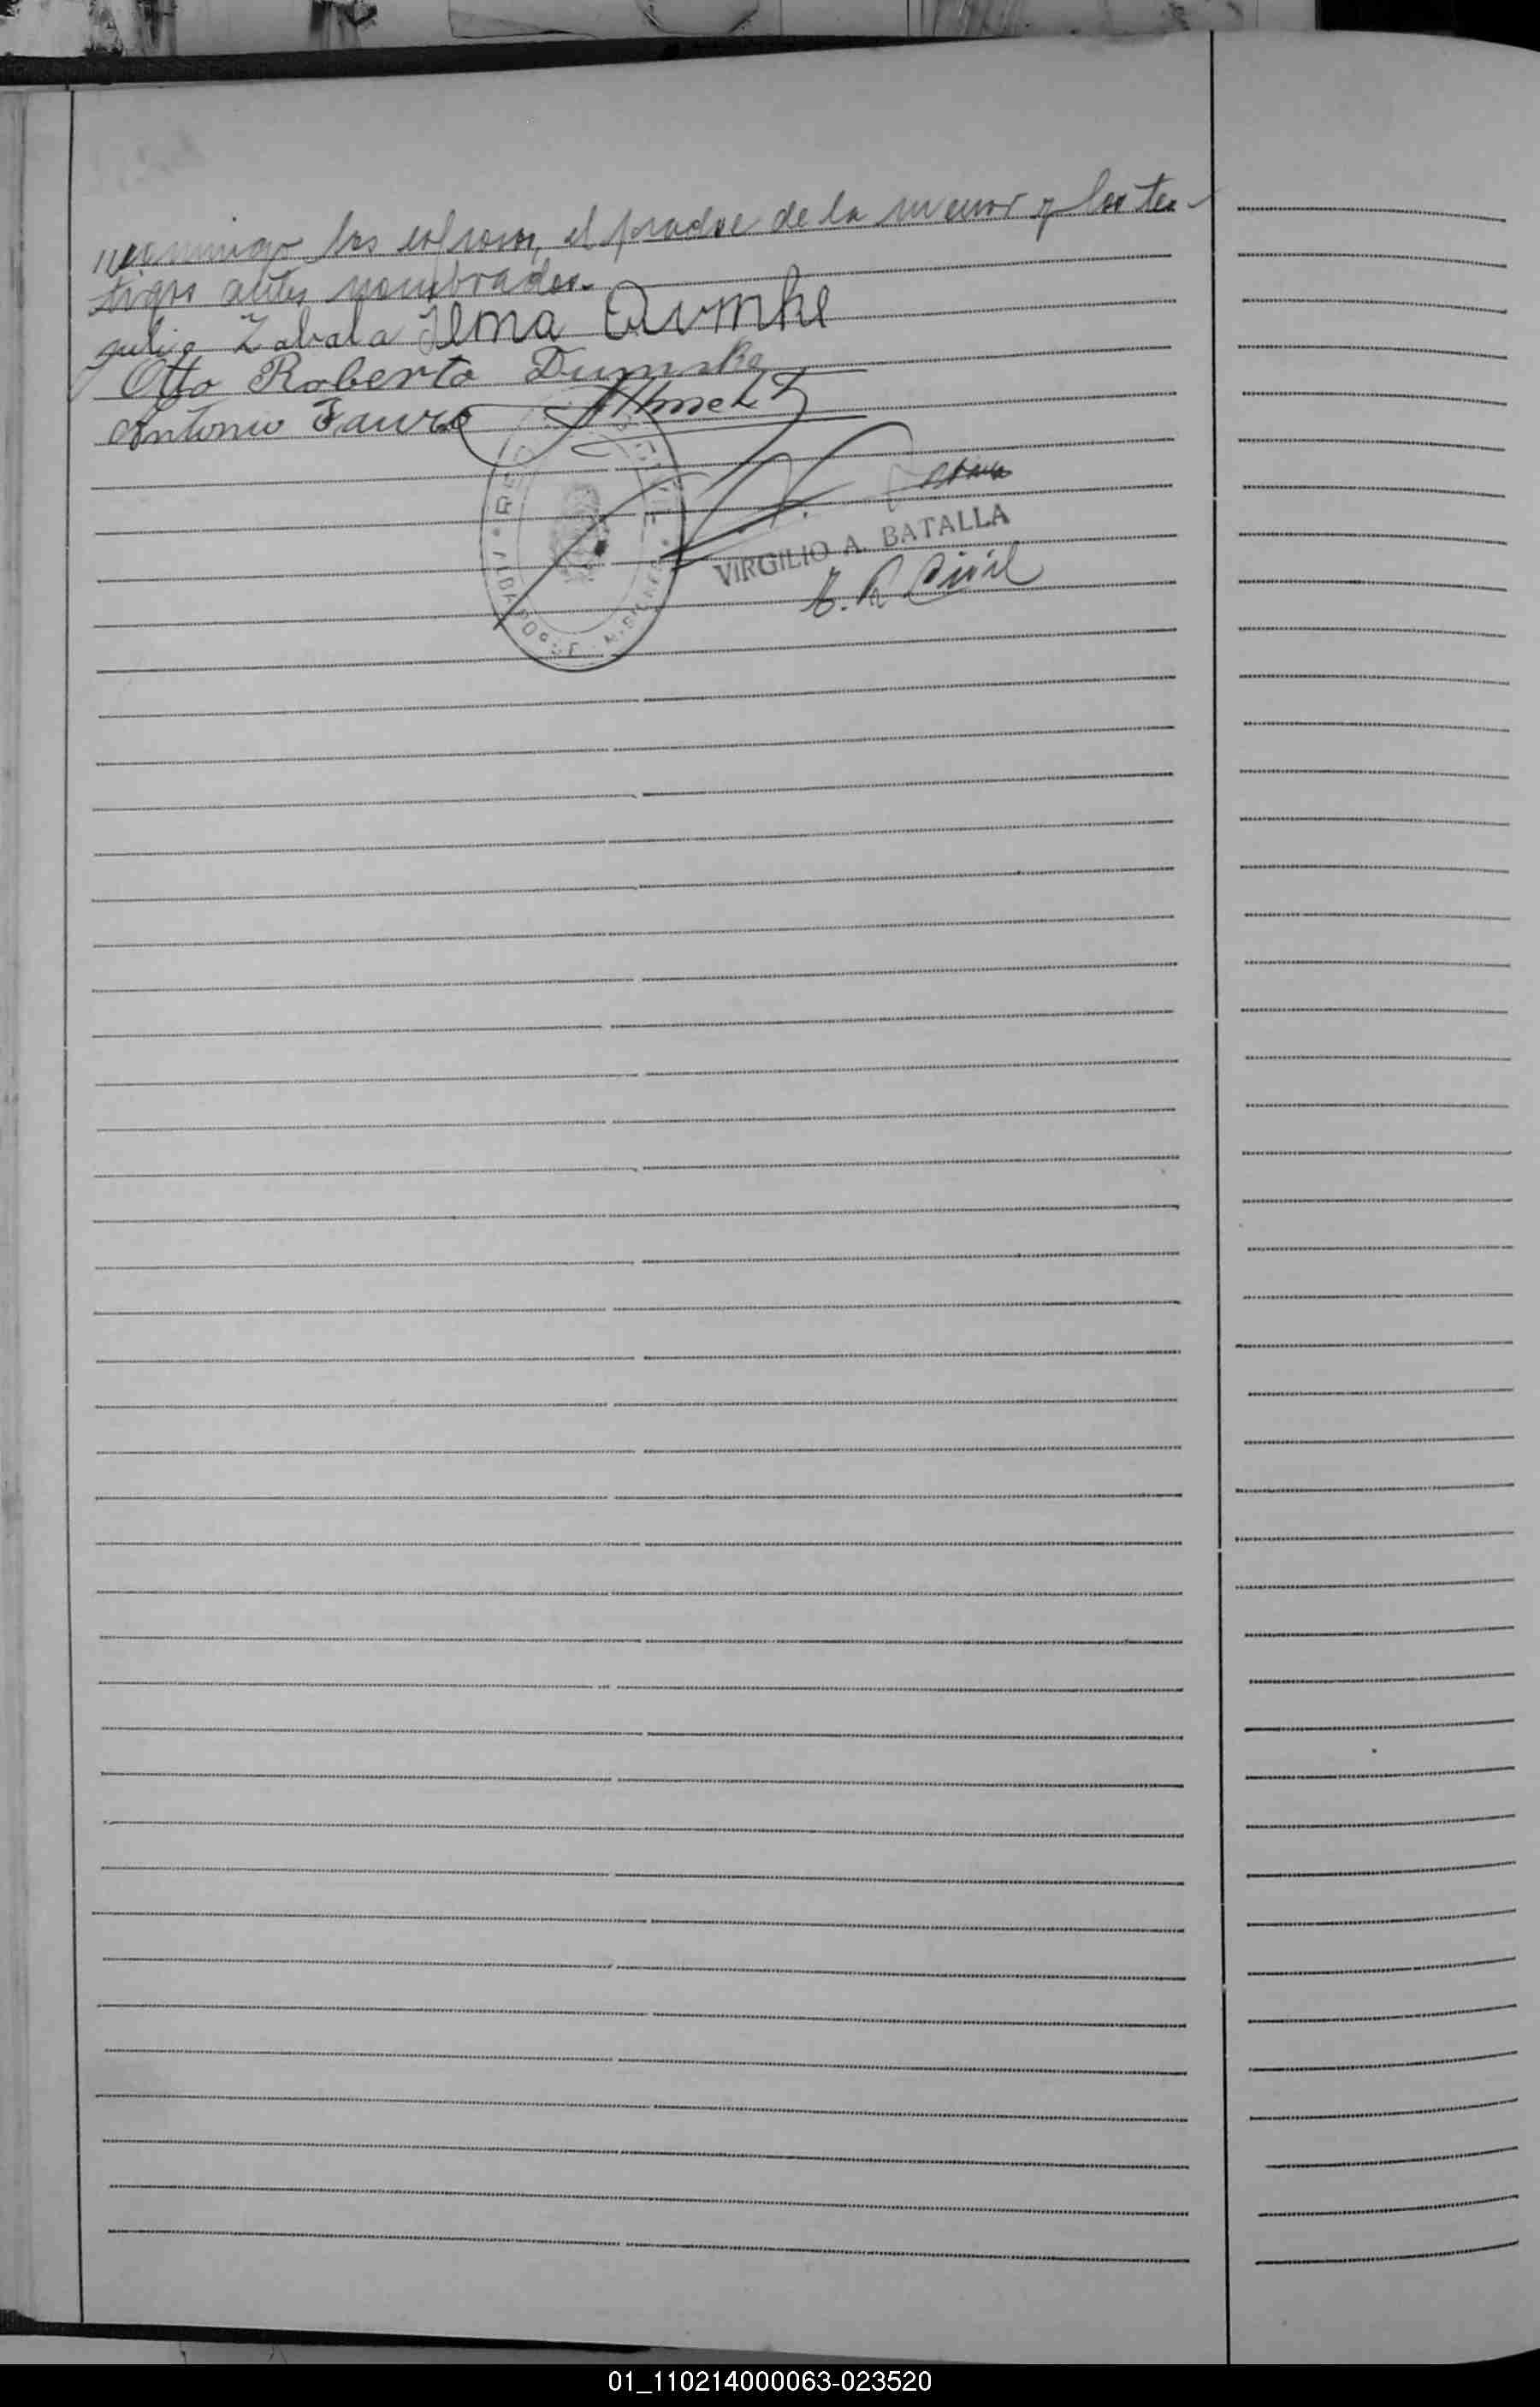 conmigo los esposos, el padre de la menor y los tes-
tigos antes nombrados.-
julio Zabala Ilma Dumke
Otto Roberto Dumke
Antonio Fauro
VIRGILIO A. BATALLA
E. R. Civil
01_110214000063-023520